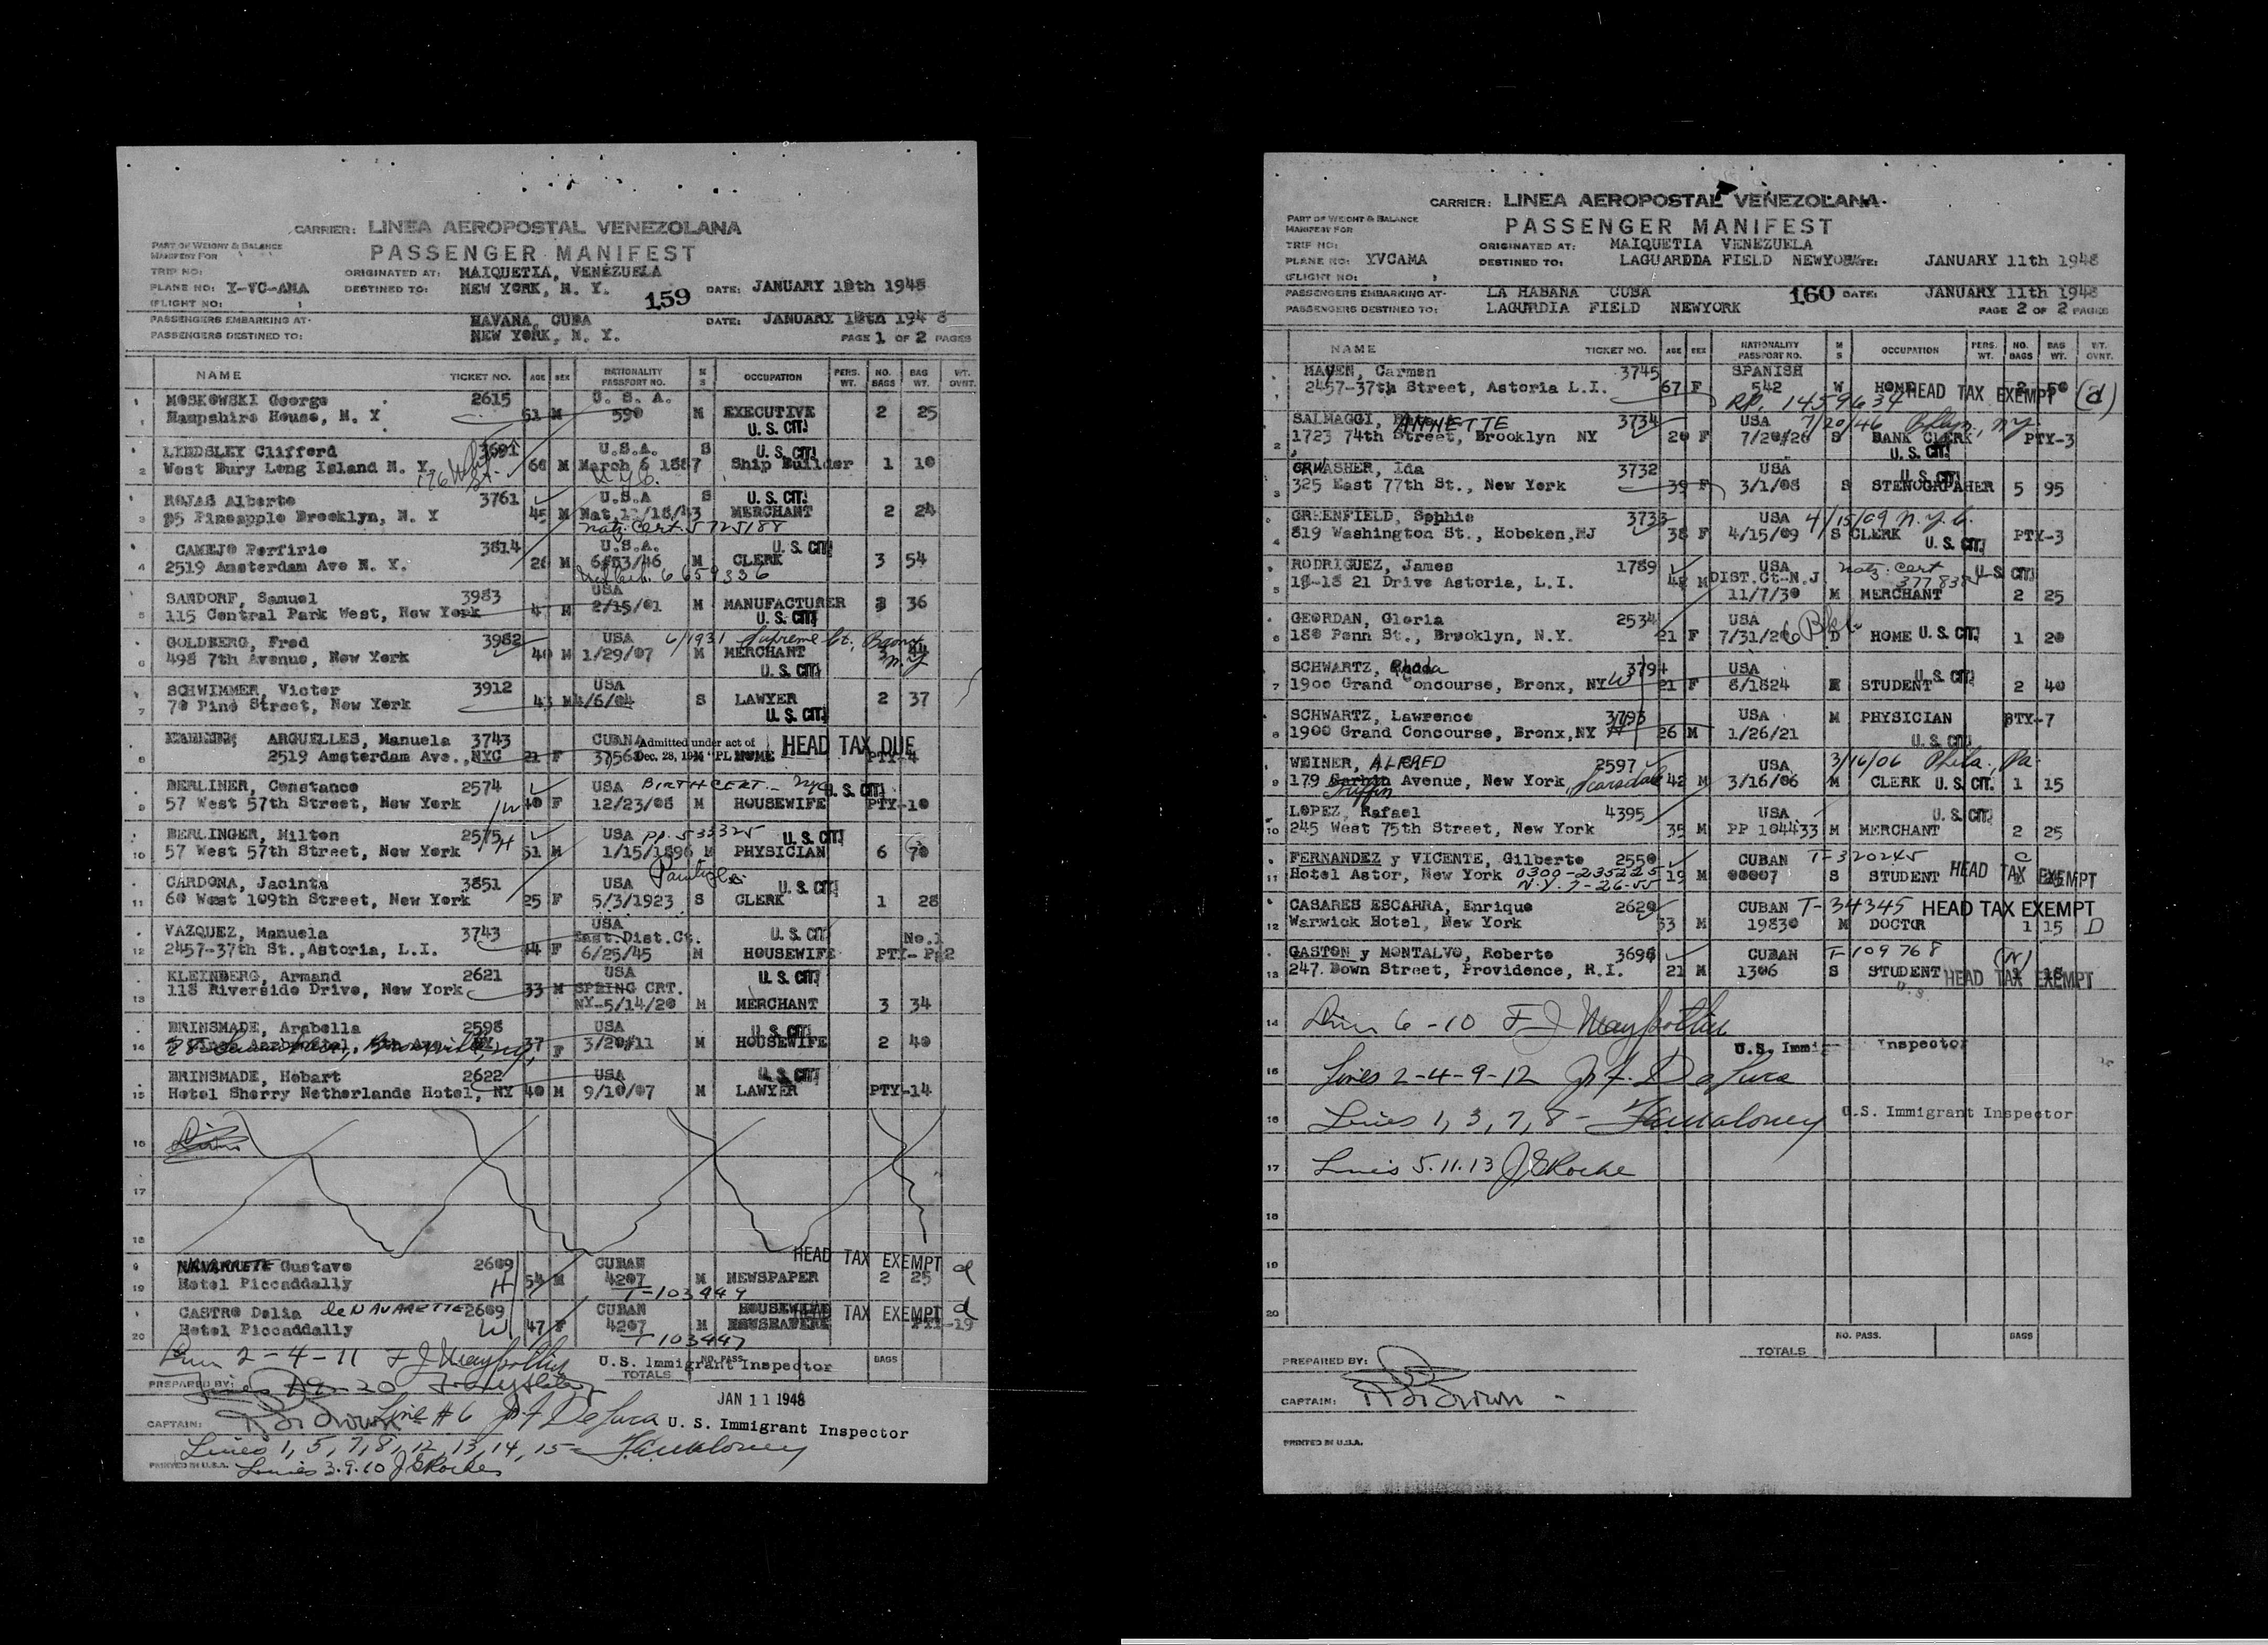 CARRIER: LINEA AEROPOSTAL VENEZOLANA
PART OF WEIGHT & BALANCE
MANIFEST FOR
PASSENGER MANIFEST
TRIP NO: ORIGINATED AT: MAIQUETIA, VENEZUELA
PLANE NO: Y-VC-AMA DESTINED TO: NEW YORK, N. Y. 159 DATE: JANUARY 1948
(FLIGHT NO: )
PASSENGERS EMBARKING AT- HAVANA, CUBA DATE: JANUARY 1948
PASSENGERS DESTINED TO: NEW YORK, N. Y. PAGE 1 OF 2 PAGES
NAME TICKET NO. AGE SEX NATIONALITY PASSPORT NO. M S OCCUPATION PERS. WT. NO. BAGS BAG WT. WT. OVNT.
1 MOSKOWSKI George 2615 U. S. A.
Hampshire House, N. Y 61 M 590 M EXECUTIVE 2 25
U. S. CIT.
LINDSLEY Clifford 3691 U.S.A. S U. S. CIT.
2 West Bury Long Island N. Y. 60 M March 6 1887 Ship Builder 1 10
N.Y.C.
ROJAS Alberto 3761 U.S.A S U. S. CIT.
3 Pineapple Brooklyn, N. Y 45 M Nat. MERCHANT 2 24
natz. cert 5725188
CAMEJO Porfirio 3814 U.S.A. U. S. CIT.
4 2519 Amsterdam Ave N. Y. 26 M M CLERK 3 54
6659336
SANDORF, Samuel 3983 USA
5 115 Central Park West, New York M 2/15/01 M MANUFACTURER 36
U. S. CIT.
GOLDBERG, Fred 3982 USA 6/1931 Supreme Ct., Bronx
6 498 7th Avenue, New York 40 M 1/29/07 M MERCHANT N.Y.
U. S. CIT.
SCHWIMMER, Victor 3912 USA
7 70 Pine Street, New York 43 M 4/6/04 S LAWYER 2 37
U. S. CIT.
ARGUELLES, Manuela 3743 CUBANA Admitted under act of HEAD TAX DUE
8 2519 Amsterdam Ave., NYC 21 F Dec. 28, HOME PTY-4
BERLINER, Constance 2574 USA BIRTH CERT. NYC U. S. CIT.
9 57 West 57th Street, New York W 40 F 12/23/08 M HOUSEWIFE PTY-10
BERLINGER, Milton 2575 USA PP. 533325 U. S. CIT.
10 57 West 57th Street, New York H 51 M 1/15/1896 M PHYSICIAN 6 70
CARDONA, Jacinta 3851 USA U. S. CIT.
11 60 West 109th Street, New York 25 F 5/3/1923 S CLERK 1 28
VAZQUEZ, Manuela 3743 USA East.Dist.Ct. U. S. CIT. No.1
12 2457-37th St.,Astoria, L.I. 44 F 6/25/45 M HOUSEWIFE PTY- Pg2
KLEINBERG, Armand 2621 USA U. S. CIT.
118 Riverside Drive, New York 33 M SPRING CRT.
13 NY-5/14/20 M MERCHANT 3 34
BRINSMADE, Arabella 2598 USA U. S. CIT.
14 37 F 3/20/11 M HOUSEWIFE 2 40
BRINSMADE, Hobart 2622 USA U. S. CIT.
15 Hotel Sherry Netherlands Hotel, NY 40 M 9/10/07 M LAWYER PTY-14
16
17
18
HEAD TAX EXEMPT
NAVARRETE Gustavo 2609 CUBAN d
19 Hotel Piccaddally H 54 M 4207 M NEWSPAPER 2 25
T-103449
CASTRO Delia de NAVARETTE 2609 CUBAN HOUSEWIFE TAX EXEMPT d
20 Hotel Piccaddally W 47 F 4207 M PTY-19
T 103447
2-4-11 U.S. Immigrant Inspector
NO. PASS. BAGS
TOTALS
PREPARED BY: Lines 19-20
JAN 11 1948
CAPTAIN: Line #6 DeLuca U. S. Immigrant Inspector
Lines 1, 5, 7, 8, 12, 13, 14, 15- Maloney
PRINTED IN U.S.A. Lines 3.9.10 J E Roche
CARRIER: LINEA AEROPOSTAL VENEZOLANA
PART OF WEIGHT & BALANCE
MANIFEST FOR
PASSENGER MANIFEST
TRIP NO: ORIGINATED AT: MAIQUETIA VENEZUELA
PLANE NO: YVCAMA DESTINED TO: LAGUARDDA FIELD NEWYORK DATE: JANUARY 11th 1948
(FLIGHT NO: )
PASSENGERS EMBARKING AT- LA HABANA CUBA 160 DATE: JANUARY 11th 1948
PASSENGERS DESTINED TO: LAGURDIA FIELD NEWYORK PAGE 2 OF 2 PAGES
NAME TICKET NO. AGE SEX NATIONALITY PASSPORT NO. M S OCCUPATION PERS. WT. NO. BAGS BAG WT. WT. OVNT.
Carmen 3745 SPANISH
1 2457-37th Street, Astoria L.I. 67 F 542 W HOME HEAD TAX EXEMPT (d)
RP. 1459634
SALMAGGI, ANNETTE 3734 USA 7/20/46 Bklyn, NY
2 1723 74th Street, Brooklyn NY 20 F S BANK CLERK PTY-3
U. S. CIT.
GRWASHER, Ida 3732 USA U. S. CIT.
3 325 East 77th St., New York 39 F 3/1/08 S STENOGRPAHER 5 95
GREENFIELD, Sophie 3733 USA 4/15/09 N.Y.C.
4 819 Washington St., Hoboken,NJ 38 F 4/15/09 S CLERK U. S. CIT. PTY-3
RODRIGUEZ, James 1789 USA natz. cert U. S. CIT.
18-18 21 Drive Astoria, L.I. M DIST.Ct-N.J 377838
5 11/7/30 M MERCHANT 2 25
GEORDAN, Gloria 2534 USA
6 180 Penn St., Brooklyn, N.Y. 21 F 7/31/26 D HOME U. S. CIT. 1 20
SCHWARTZ, Rhoda 3794 USA
7 1900 Grand Concourse, Bronx, NY W 21 F 8/1824 STUDENT U. S. CIT. 2 40
SCHWARTZ, Lawrence 3793 USA M PHYSICIAN PTY-7
8 1900 Grand Concourse, Bronx,NY H 26 M 1/26/21
U. S. CIT.
WEINER, ALFRED 2597 USA 3/16/06 Phila., Pa.
9 179 Avenue, New York Scarsdale 42 M 3/16/06 M CLERK U. S. CIT. 1 15
Griffin
LOPEZ, Rafael 4395 USA U. S. CIT.
10 245 West 75th Street, New York 35 M PP 104433 M MERCHANT 2 25
FERNANDEZ y VICENTE, Gilberto 2550 CUBAN T-320245
11 Hotel Astor, New York 0300-235225 19 M 00007 S STUDENT HEAD TAX EXEMPT
N.Y. 7-26-55
CASARES ESCARRA, Enrique 2629 CUBAN T-34345 HEAD TAX EXEMPT
12 Warwick Hotel, New York 33 M 19830 M DOCTOR 1 15 D
GASTON y MONTALVO, Roberto 3696 CUBAN T-109768 (N)
13 247 Down Street, Providence, R.I. 21 M 1306 S STUDENT HEAD TAX EXEMPT
14 6-10
U.S. Immi Inspector
Lines 2-4-9-12 DeLuca
Lines 1, 3, 7, 8- Maloney U.S. Immigrant Inspector
17 Lines 5.11.13 J E Roche
18
19
20
NO. PASS. BAGS
TOTALS
PREPARED BY:
CAPTAIN:
PRINTED IN U.S.A.